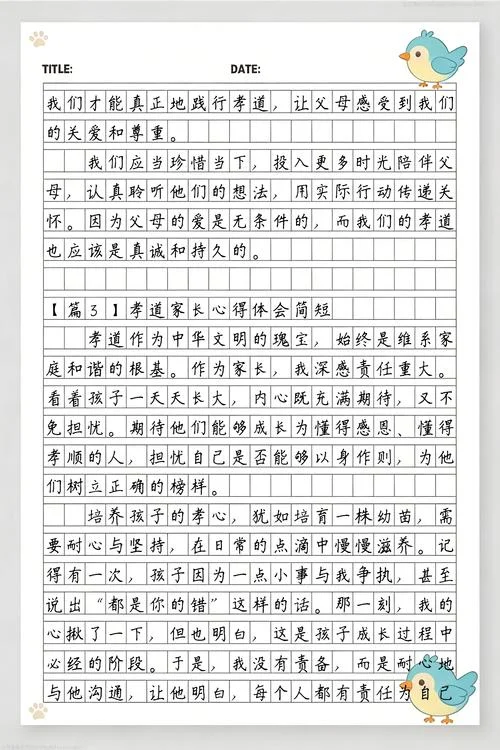 TITLE: DATE:
我们才能真正地践行孝道，让父母感受到我们
的关爱和尊重。
我们应当珍惜当下，投入更多时光陪伴父
母，认真聆听他们的想法，用实际行动传递关
怀。因为父母的爱是无条件的，而我们的孝道
也应该是真诚和持久的。
【篇3】孝道家长心得体会简短
孝道作为中华文明的瑰宝，始终是维系家
庭和谐的根基。作为家长，我深感责任重大。
看着孩子一天天长大，内心既充满期待，又不
免担忧。期待他们能够成长为懂得感恩、懂得
孝顺的人，担忧自己是否能够以身作则，为他
们树立正确的榜样。
培养孩子的孝心，犹如培育一株幼苗，需
要耐心与坚持，在日常的点滴中慢慢滋养。记
得有一次，孩子因为一点小事与我争执，甚至
说出“都是你的错”这样的话。那一刻，我的
心揪了一下，但也明白，这是孩子成长过程中
必经的阶段。于是，我没有责备，而是耐心地
与他沟通，让他明白，每个人都有责任为自己